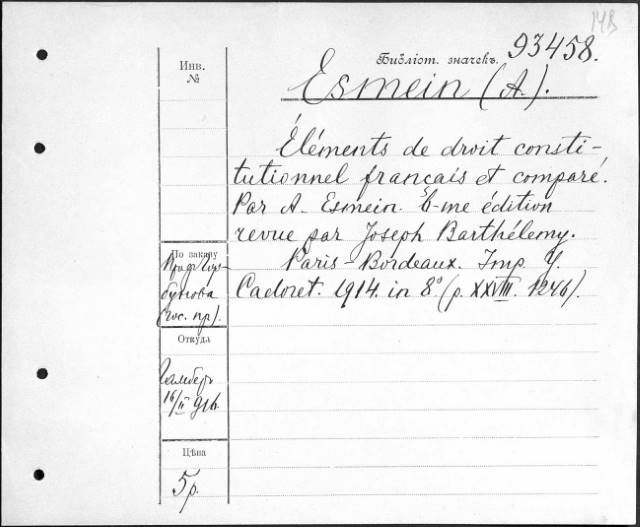 14B
Библіот. значекъ. 93458.
Инв.
№
Esmein (A.).
Éléments de droit consti-
tutionnel français et comparé.
Par A. Esmein. 6-me édition
revue par Joseph Barthélemy.
Paris-Bordeaux. Imp. Y.
Cadoret. 1914. in 8° (p. XXVIII. 1246).
По заказу
Проф. Гор-
бунова
(гос. пр.).
Откуда
16/II 916.
Цѣна
5 р.